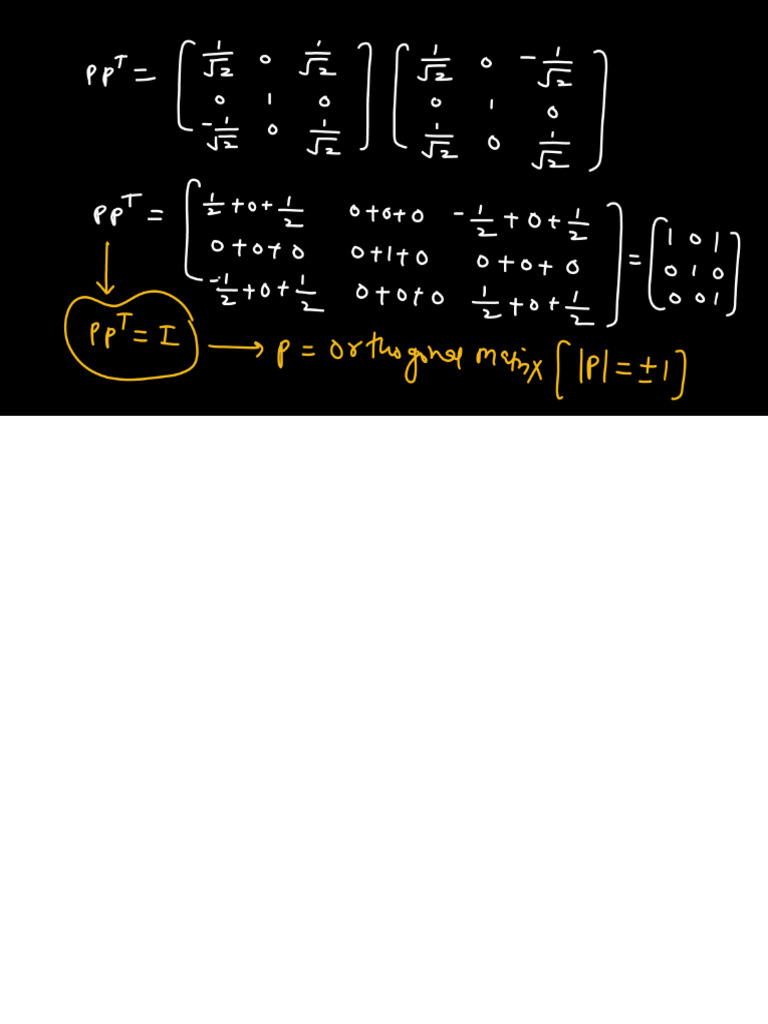 PPᵀ = [1/√2 0 1/√2; 0 1 0; -1/√2 0 1/√2] [1/√2 0 -1/√2; 0 1 0; 1/√2 0 1/√2]
PPᵀ = [1/2+0+1/2 0+0+0 -1/2+0+1/2; 0+0+0 0+1+0 0+0+0; -1/2+0+1/2 0+0+0 1/2+0+1/2] = [1 0 1; 0 1 0; 0 0 1]
PPᵀ = I → P = orthogonal matrix [|P| = ±1]